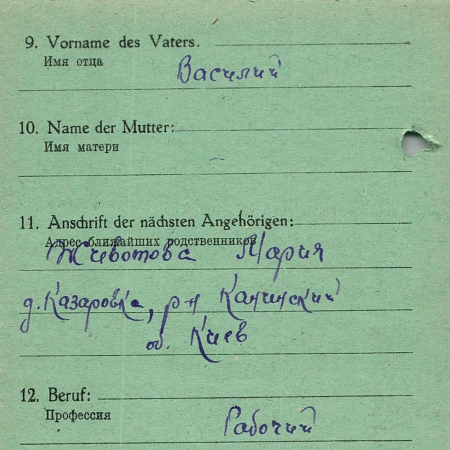 9. Vorname des Vaters.
Имя отца
Василий
10. Name der Mutter:
Имя матери
11. Anschrift der nächsten Angehörigen:
Адрес ближайших родственников
Животова Мария
д. Казаровка, р-н Канинский
об. Киев
12. Beruf:
Профессия
Рабочий